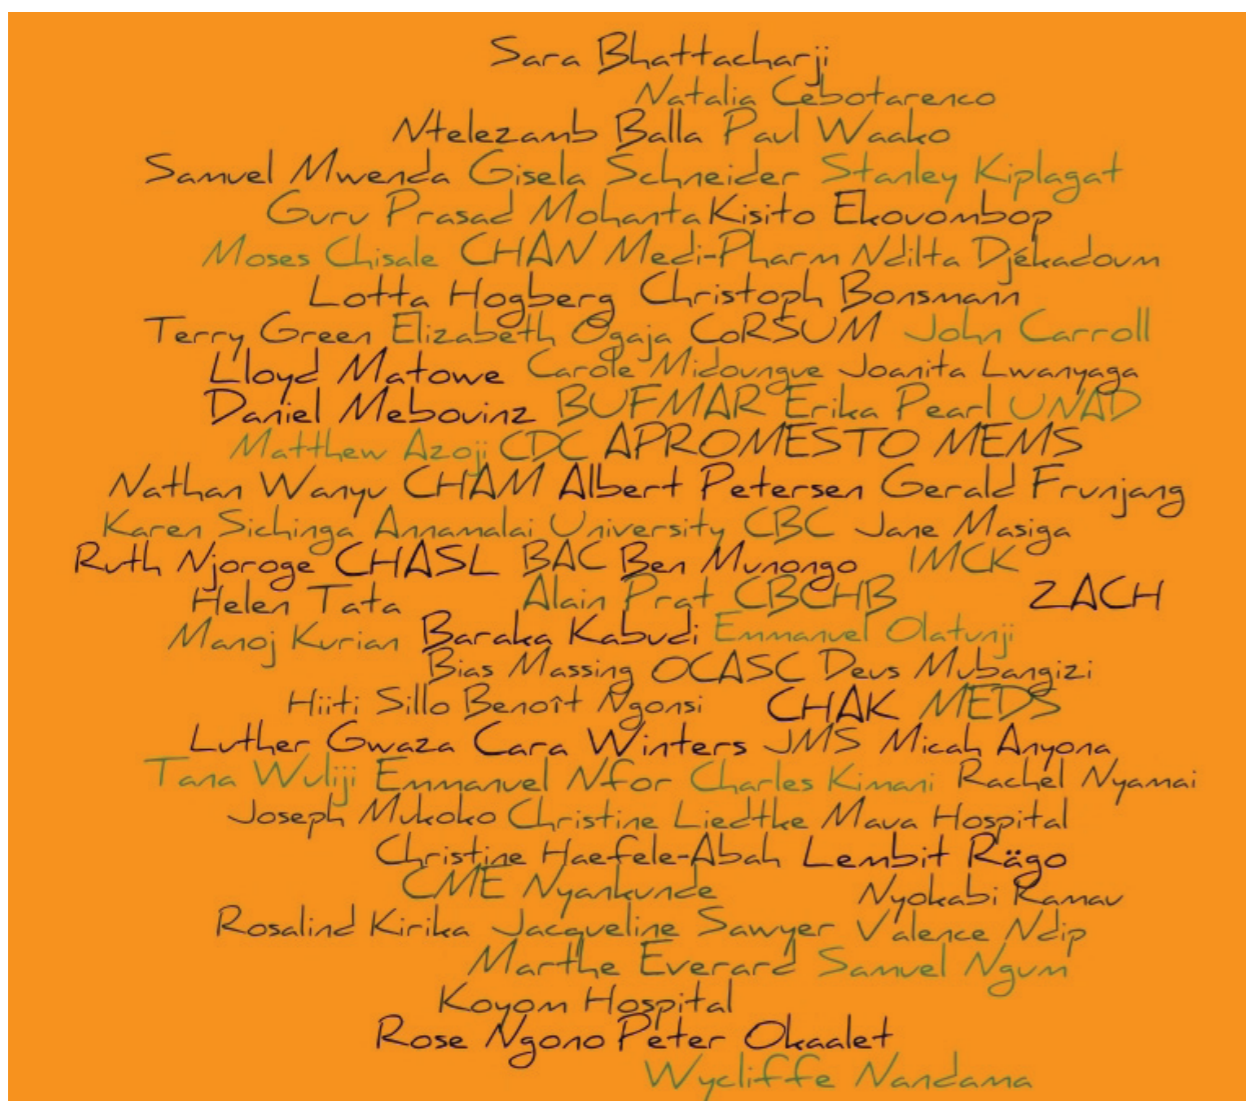 Sara Bhattacharji
Natalia Cebotarenco
Ntelezamb Balla Paul Waako
Samuel Mwenda Gisela Schneider Stanley Kiplagat
Guru Prasad Mohanta Kisito Ekouombop
Moses Chisale CHAN Medi-Pharm Ndilta Djékadoum
Lotta Hogberg Christoph Bonsmann
Terry Green Elizabeth Ogaja CoRSUM John Carroll
Lloyd Matowe Carole Midoungue Joanita Lwanyaga
Daniel Mebouinz BUFMAR Erika Pearl UNAD
Matthew Azoji CDC APROMESTO MEMS
Nathan Wanyu CHAM Albert Petersen Gerald Frunjang
Karen Sichinga Annamalai University CBC Jane Masiga
Ruth Njoroge CHASL BAC Ben Munongo IMCK
Helen Tata Alain Prat CBCHB ZACH
Manoj Kurian Baraka Kabudi Emmanuel Olatunji
Bias Massing OCASC Deus Mubangizi
Hiiti Sillo Benoît Ngonsi CHAK MEDS
Luther Gwaza Cara Winters JMS Micah Anyona
Tana Wuliji Emmanuel Nfor Charles Kimani Rachel Nyamai
Joseph Mukoko Christine Liedtke Maua Hospital
Christine Haefele-Abah Lembit Rägo
CME Nyankunde Nyokabi Kamau
Rosalind Kirika Jacqueline Sawyer Valence Ndip
Marthe Everard Samuel Ngum
Koyom Hospital
Rose Ngono Peter Okaalet
Wycliffe Nandama